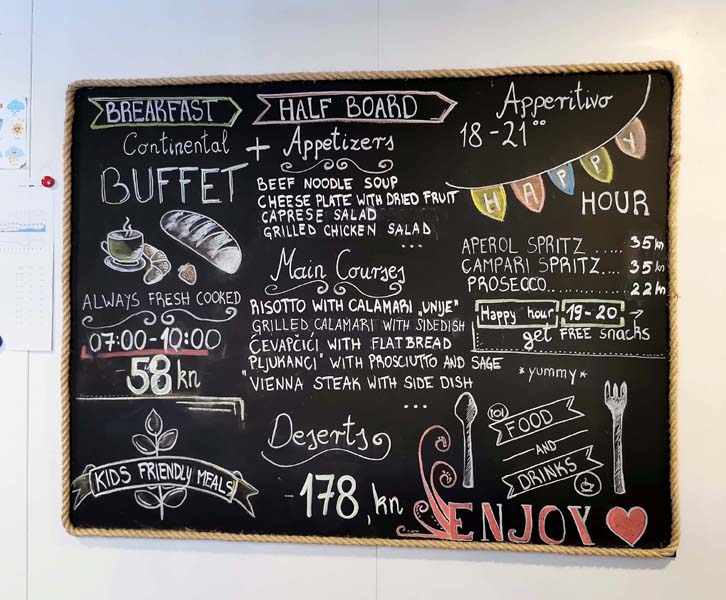 BREAKFAST
Continental
BUFFET
ALWAYS FRESH COOKED
07:00-10:00
-58 kn
KIDS FRIENDLY MEALS
HALF BOARD
+ Appetizers
BEEF NOODLE SOUP
CHEESE PLATE WITH DRIED FRUIT
CAPRESE SALAD
GRILLED CHICKEN SALAD
...
Main Courses
RISOTTO WITH CALAMARI "UNIJE"
GRILLED CALAMARI WITH SIDEDISH
ĆEVAPČIĆI WITH FLATBREAD
PLJUKANCI" WITH PROSCIUTTO AND SAGE
"VIENNA STEAK WITH SIDE DISH
...
Deserts
-178, kn
Apperitivo
18-21°°
HAPPY
HOUR
APEROL SPRITZ .... 35 kn
CAMPARI SPRITZ.... 35 kn
PROSECCO.......... 22 kn
Happy hour 19-20 →
get FREE snacks
*yummy*
FOOD
AND
DRINKS
ENJOY